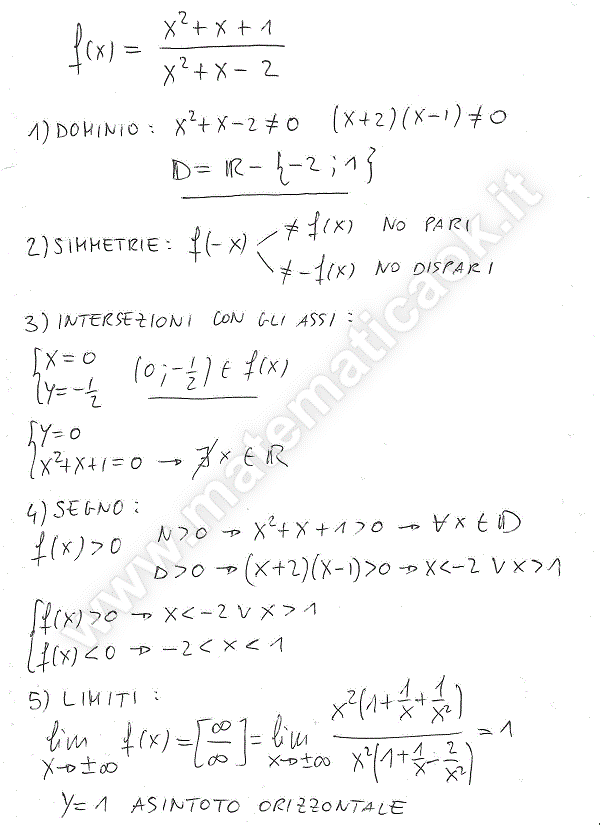 f(x) = (x² + x + 1) / (x² + x - 2)
1) DOMINIO: x² + x - 2 ≠ 0 (x+2)(x-1) ≠ 0
D = ℝ - {-2 ; 1}
2) SIMMETRIE: f(-x) ≠ f(x) NO PARI
≠ -f(x) NO DISPARI
3) INTERSEZIONI CON GLI ASSI:
{ x = 0
{ y = -1/2 (0 ; -1/2) ∈ f(x)
{ y = 0
{ x² + x + 1 = 0 → ∄ x ∈ ℝ
4) SEGNO:
f(x) > 0 N > 0 → x² + x + 1 > 0 → ∀ x ∈ D
D > 0 → (x+2)(x-1) > 0 → x < -2 ∨ x > 1
{ f(x) > 0 → x < -2 ∨ x > 1
{ f(x) < 0 → -2 < x < 1
5) LIMITI:
lim x→±∞ f(x) = [∞/∞] = lim x→±∞ x²(1 + 1/x + 1/x²) / x²(1 + 1/x - 2/x²) = 1
y = 1 ASINTOTO ORIZZONTALE
www.matematicaok.it